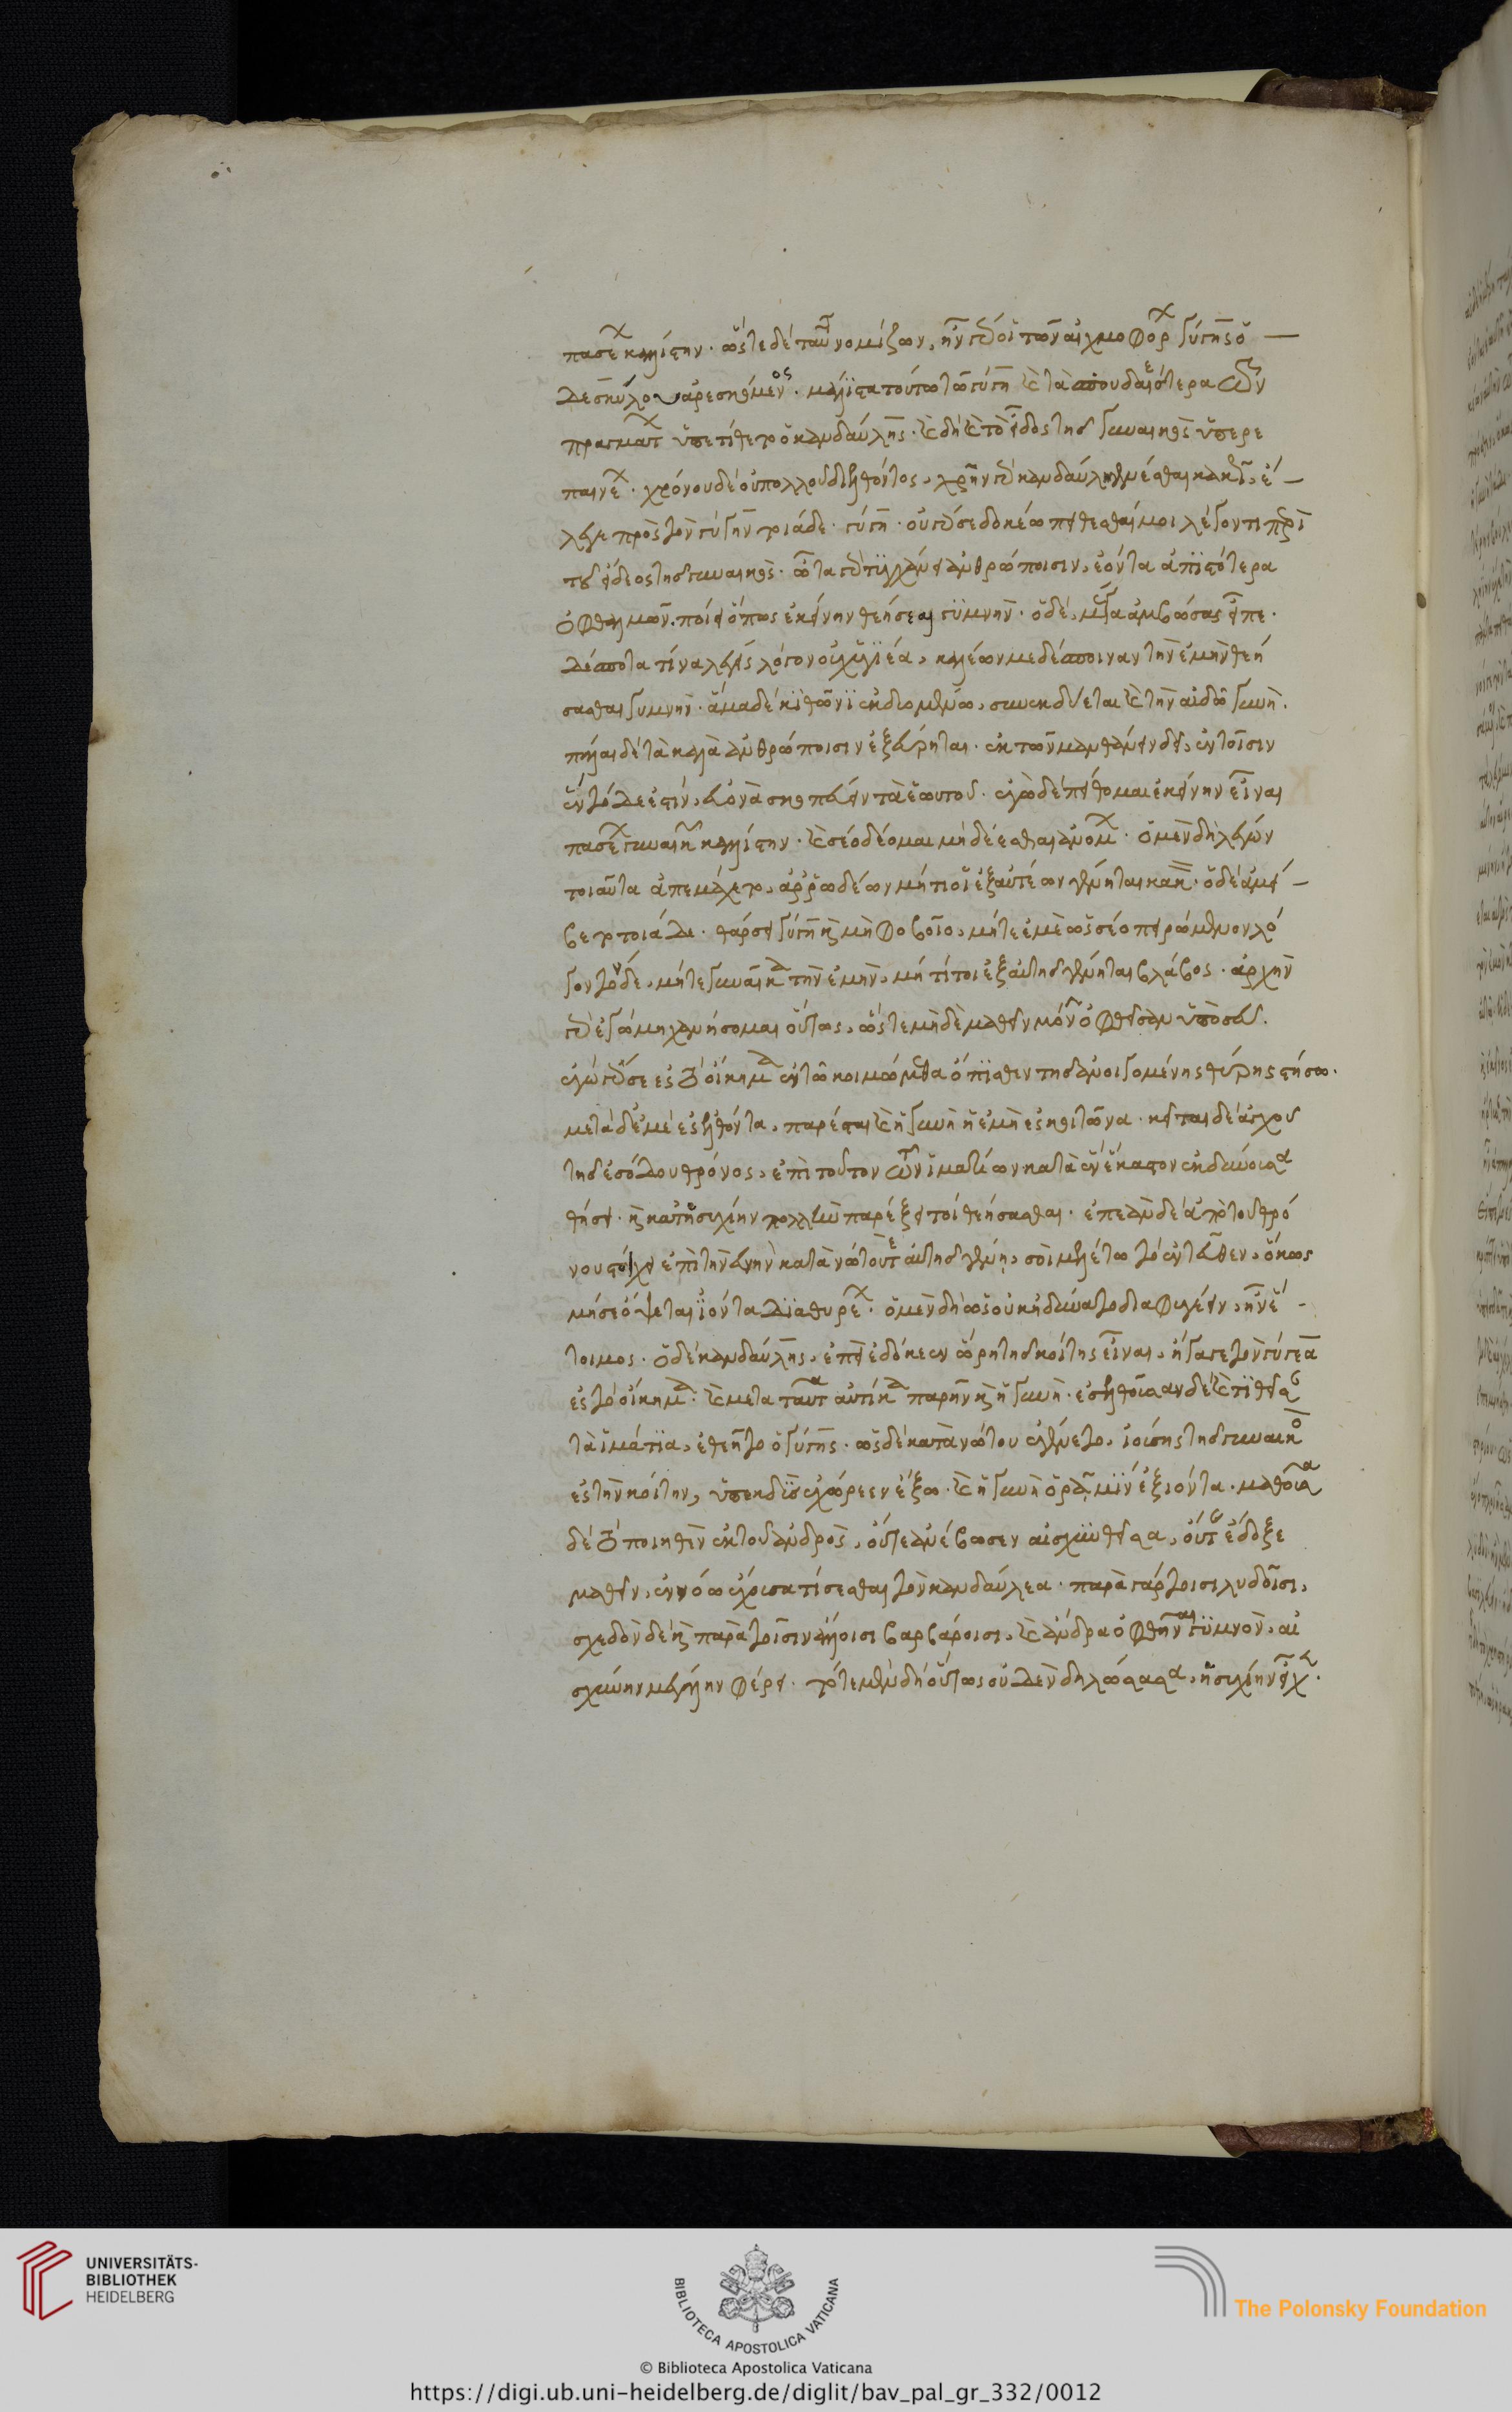 πασέων καλλίστην· ὥστε δὲ ταῦτα νομίζων, ἦν γάρ οἱ τῶν αἰχμοφόρων γύγης ὁ
δασκύλου ἀρεσκόμενος· μάλιστα τούτω τῶ γύγη καὶ τὰ σπουδαιέστερα τῶν
πραγμάτων ὑπετίθετο ὁ κανδαύλης· καὶ δὴ καὶ τὸ εἶδος τῆς γυναικὸς ὑπερε
παινέων· χρόνου δὲ οὐ πολλοῦ διελθόντος, χρῆν γὰρ κανδαύλη γενέσθαι κακῶς, ἔ
λεγε πρὸς τὸν γύγην τοιάδε· γύγη· οὐ γάρ σε δοκέω πείθεσθαί μοι λέγοντι περὶ
τοῦ εἴδεος τῆς γυναικὸς· ὦτα γὰρ τυγχάνει ἀνθρώποισιν, ἐόντα ἀπιστότερα
ὀφθαλμῶν. ποίει ὅπως ἐκείνην θεήσεαι γυμνήν· ὁ δὲ μέγα ἀμβώσας εἶπε·
δέσποτα τίνα λέγεις λόγον οὐχ ὑγιέα, κελεύων με δέσποιναν τὴν ἐμὴν θεή
σασθαι γυμνήν· ἅμα δὲ κιθῶνι ἐκδυομένω, συνεκδύεται καὶ τὴν αἰδῶ γυνή.
πάλαι δὲ τὰ καλὰ ἀνθρώποισιν ἐξεύρηται· ἐκ τῶν μανθάνειν δεῖ, ἐν τοῖσιν
ἓν τόδε ἐστίν, εὖ τὰ σκοπέειν τὰ ἑωυτοῦ· ἐγὼ δὲ πείθομαι ἐκείνην εἶναι
πασέων γυναικῶν καλλίστην· καὶ σέο δέομαι μὴ δέεσθαι ἀνομων· ὁ μὲν δὴ λέγων
τοιαῦτα ἀπεμάχετο, ἀρρωδέων μή τι οἱ ἐξ αὐτέων γένηται κακόν· ὁ δὲ ἀμεί
βετο τοιάδε· θάρσει γύγη καὶ μὴ φοβοῖο, μήτε ἐμὲ ὥς σέο πειρώμενον λό
γον τόνδε, μήτε γυναῖκα τὴν ἐμήν, μή τί τοι ἐξ αὐτῆς γένηται βλάβος· ἀρχὴν
γὰρ ἐγὼ μηχανήσομαι οὕτως, ὥστε μηδὲ μαθεῖν μιν ὀφθεῖσαν ὑπὸ σεῦ.
ἐγὼ γάρ σε ἐς τὸ οἴκημα ἐν τῶ κοιμώμεθα ὄπισθεν τῆς ἀνοιγομένης θύρης στήσω·
μετὰ δ᾽ ἐμὲ ἐσελθόντα, παρέσται καὶ ἡ γυνὴ ἡ ἐμὴ ἐς κοιτῶνα· κεῖται δὲ ἀγχοῦ
τῆς ἐσόδου θρόνος, ἐπὶ τοῦτον τῶν ἱματίων κατὰ ἓν ἕκαστον ἐκδύνουσα
θήσει· καὶ κατ᾽ ἡσυχίην πολλὴν παρέξει τοι θεήσασθαι· ἐπεὰν δὲ ἀπὸ τοῦ θρό
νου στείχη ἐπὶ τὴν εὐνὴν κατὰ νώτου τε αὐτῆς γένη, σοὶ μελέτω τὸ ἐντεῦθεν, ὅκως
μή σε ὄψεται ἰόντα διὰ θυρέων· ὁ μὲν δὴ ὡς οὐκ ἠδύνατο διαφυγέειν, ἦν ἕ
τοιμος· ὁ δὲ κανδαύλης, ἐπεὶ ἐδόκεεν ὥρη τῆς κοίτης εἶναι, ἤγαγε τὸν γύγεα
ἐς τὸ οἴκημα· καὶ μετὰ ταῦτα αὐτίκα παρῆν καὶ ἡ γυνή· ἐσελθοῦσαν δὲ καὶ τιθεῖσαν
τὰ ἱμάτια, ἐθηεῖτο ὁ γύγης· ὡς δὲ κατὰ νώτου ἐγένετο, ἰούσης τῆς γυναικὸς
ἐς τὴν κοίτην, ὑπεκδὺς ἐχώρεεν ἔξω· καὶ ἡ γυνὴ ὁρᾶ μιν ἐξιόντα· μαθοῦσα
δὲ τὸ ποιηθὲν ἐκ τοῦ ἀνδρὸς, οὔτε ἀνέβωσεν αἰσχυνθεῖσα, οὔτε ἔδοξε
μαθεῖν, ἐν νόω ἔχουσα τίσεσθαι τὸν κανδαύλεα· παρὰ γὰρ τοῖσι λυδοῖσι,
σχεδὸν δὲ καὶ παρὰ τοῖσιν ἄλλοισι βαρβάροισι, καὶ ἄνδρα ὀφθῆναι γυμνὸν, αἰ
σχύνην μεγάλην φέρει· τότε μὲν δὴ οὕτως οὐδὲν δηλώσασα, ἡσυχίην εἶχε.
UNIVERSITÄTS-
BIBLIOTHEK
HEIDELBERG
BIBLIOTECA APOSTOLICA VATICANA
The Polonsky Foundation
© Biblioteca Apostolica Vaticana
https://digi.ub.uni-heidelberg.de/diglit/bav_pal_gr_332/0012